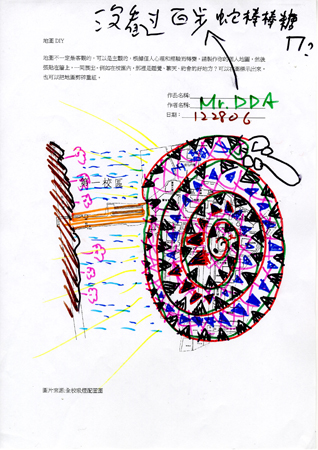 沒看過百步蛇棒棒糖ㄇ?
地圖 DIY
地圖不一定是客觀的，可以是主觀的，根據個人心裡和經驗而轉變。請製作你的個人地圖，然後
張貼在牆上，一同展出。例如在校園內，那裡是睡覺、聊天、約會的好地方？可以在圖標示出來。
也可以把地圖剪碎重組。
作品名稱:
作者名稱: Mr.DDA
日期: 122806
校區
圖片來源:全校吸煙配置圖